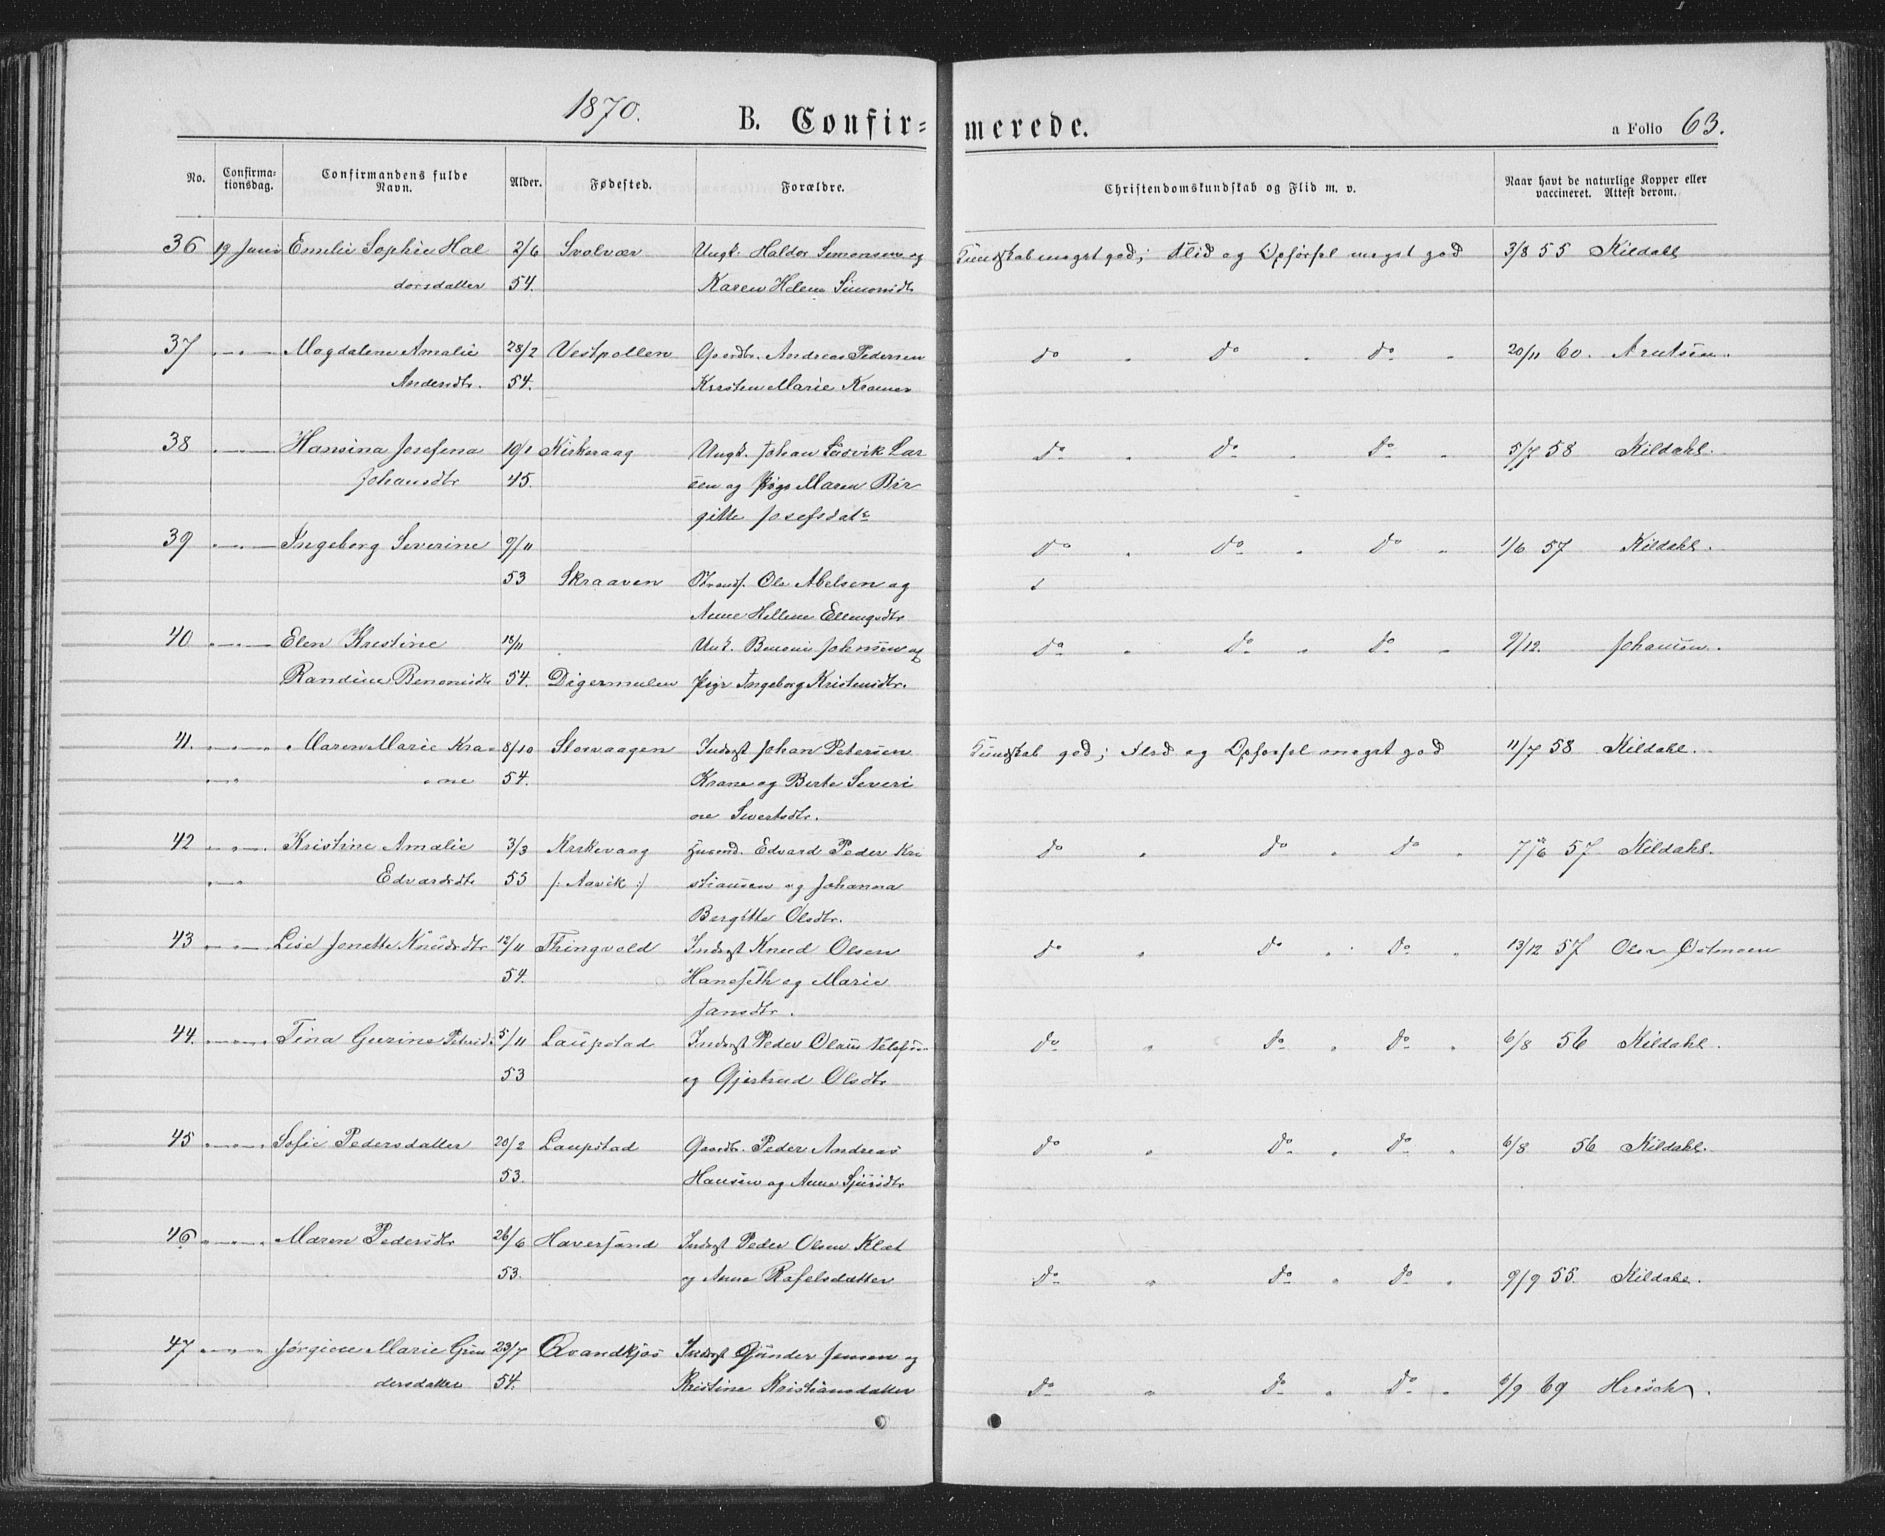 1870. B. Confirmerede. a Folio 63.
No. Confirmationsdag. Confirmandens fulde Navn. Alder. Fødested. Forældre. Christendomskundskab og Flid m. v. Naar havt de naturlige Kopper eller vaccineret. Attest derom.
36 19 Juni Emelie Sophie Hal 2/6 Svolvær Ungk. Haldor Simonsen og Kundskab meget god; Flid og Opførsel meget god 3/8 55 Kildahl
dorsdatter 54. Karen Helene Simonsdtr
37 " Magdalene Amalie 28/2 Vestpollen Gaardbr. Andreas Pedersen do " do " do " 20/11 60. Arntsen.
Andersdtr. 54. Kirsten Marie Kramer
38 " Hansina Josefena 10/1 Kirkevaag Ungk. Johan Ludvik Lar do " do " do " 5/7 58 Kildahl.
Johansdtr 45. sen og Pige Maren Bir
gitte Josefsdatr
39 " Ingeborg Severine 9/11 do " do " do " 1/6 57 Kildahl.
53 Skraaven Strands. Ole Abelsen og
Anne Hellene Ellingsdtr
40 " Elen Kristine 18/11 Unk. Benoni Johnsen og do " do " do " 9/12. Johansen.
Randine Benonisdtr 54. Digermulen Pige Ingeborg Kristensdtr.
41. " Maren Marie Kra- 8/10 Storvaagen Inderst Johan Petersen Kundskab god; Flid og Opførsel meget god 11/7 58 Kildahl.
" ne 54. Krane og Birte Severi
ne Sivertsdtr.
42 " Kristine Amalie 3/3 Kirkevaag Husmd. Edvard Peder Kri do " do " do " 7/6 57 Kildahl.
" Edvardsdtr 55 /: Aavik :/ stiansen og Johanna
Bergitte Olsdtr.
43 " Lise Jonette Knudsdtr 12/11 Thingvold Inderst Knud Olsen do " do " do " 13/12 57 Ola
54. Hanefeth og Marie
Jansdtr.
44. " Tina Gurine Petersdtr 5/11 Laupstad Inderst Peder Olaus do " do " do " 6/8 56 Kildahl.
53 og Gjertrud Olsdtr
45 " Sofie Pedersdatter 20/2 Laupstad Gaardbr. Peder Andreas do " do " do " 6/8 56 Kildahl.
53. Hansen og Anne Sjursdtr
46 " Maren Pedersdtr 26/6 Haversand Inderst Peder Olsen Klæt
53. og Anne Rafelsdatter do " do " do " 9/9 55. Kildahl.
47 " Jørgine Marie Gun 23/7 Qvandkjos Inderst Gunder Jensen og
dersdatter 54. Kristine Kristiansdatter do " do " do " 6/9 69 Hirsch.